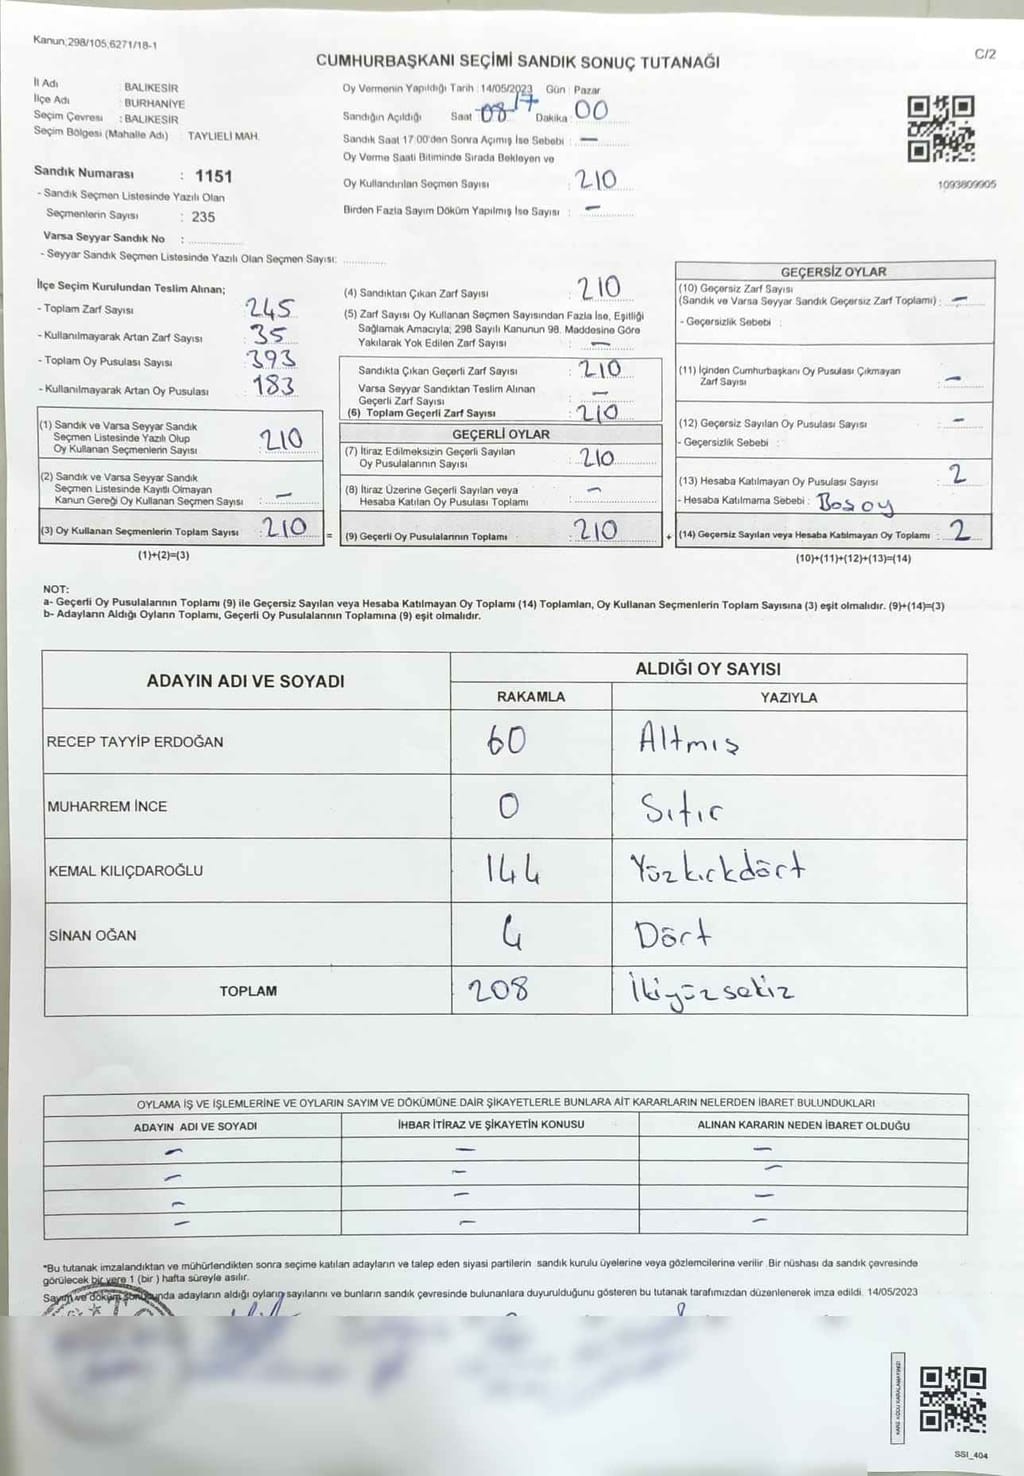 Kanun;298/105;6271/18-1
C/2
CUMHURBAŞKANI SEÇİMİ SANDIK SONUÇ TUTANAĞI
İl Adı : BALIKESİR
İlçe Adı : BURHANİYE
Seçim Çevresi : BALIKESİR
Seçim Bölgesi (Mahalle Adı) : TAYLIELİ MAH.
Sandık Numarası : 1151
- Sandık Seçmen Listesinde Yazılı Olan
Seçmenlerin Sayısı : 235
Varsa Seyyar Sandık No :
- Seyyar Sandık Seçmen Listesinde Yazılı Olan Seçmen Sayısı:
Oy Vermenin Yapıldığı Tarih : 14/05/2023 Gün : Pazar
Sandığın Açıldığı Saat 08 17 Dakika : 00
Sandık Saat 17:00'den Sonra Açımış İse Sebebi : -
Oy Verme Saati Bitiminde Sırada Bekleyen ve
Oy Kullandırılan Seçmen Sayısı : 210
Birden Fazla Sayım Döküm Yapılmış İse Sayısı : -
1093809905
İlçe Seçim Kurulundan Teslim Alınan;
- Toplam Zarf Sayısı : 245
- Kullanılmayarak Artan Zarf Sayısı : 35
- Toplam Oy Pusulası Sayısı : 393
- Kullanılmayarak Artan Oy Pusulası : 183
(1) Sandık ve Varsa Seyyar Sandık
Seçmen Listesinde Yazılı Olup
Oy Kullanan Seçmenlerin Sayısı : 210
(2) Sandık ve Varsa Seyyar Sandık
Seçmen Listesinde Kayıtlı Olmayan
Kanun Gereği Oy Kullanan Seçmen Sayısı : -
(3) Oy Kullanan Seçmenlerin Toplam Sayısı : 210
(1)+(2)=(3)
(4) Sandıktan Çıkan Zarf Sayısı : 210
(5) Zarf Sayısı Oy Kullanan Seçmen Sayısından Fazla İse, Eşitliği
Sağlamak Amacıyla; 298 Sayılı Kanunun 98. Maddesine Göre
Yakılarak Yok Edilen Zarf Sayısı : -
Sandıkta Çıkan Geçerli Zarf Sayısı : 210
Varsa Seyyar Sandıktan Teslim Alınan
Geçerli Zarf Sayısı : -
(6) Toplam Geçerli Zarf Sayısı : 210
GEÇERLİ OYLAR
(7) İtiraz Edilmeksizin Geçerli Sayılan
Oy Pusulalarının Sayısı : 210
(8) İtiraz Üzerine Geçerli Sayılan veya
Hesaba Katılan Oy Pusulası Toplamı : -
= (9) Geçerli Oy Pusulalarının Toplamı : 210
GEÇERSİZ OYLAR
(10) Geçersiz Zarf Sayısı
(Sandık ve Varsa Seyyar Sandık Geçersiz Zarf Toplamı) : -
- Geçersizlik Sebebi :
(11) İçinden Cumhurbaşkanı Oy Pusulası Çıkmayan
Zarf Sayısı : -
(12) Geçersiz Sayılan Oy Pusulası Sayısı : -
- Geçersizlik Sebebi :
(13) Hesaba Katılmayan Oy Pusulası Sayısı : 2
- Hesaba Katılmama Sebebi : Bosoy
+ (14) Geçersiz Sayılan veya Hesaba Katılmayan Oy Toplamı : 2
(10)+(11)+(12)+(13)=(14)
NOT:
a- Geçerli Oy Pusulalarının Toplamı (9) ile Geçersiz Sayılan veya Hesaba Katılmayan Oy Toplamı (14) Toplamları, Oy Kullanan Seçmenlerin Toplam Sayısına (3) eşit olmalıdır. (9)+(14)=(3)
b- Adayların Aldığı Oyların Toplamı, Geçerli Oy Pusulalarının Toplamına (9) eşit olmalıdır.
ADAYIN ADI VE SOYADI ALDIĞI OY SAYISI
RAKAMLA YAZIYLA
RECEP TAYYİP ERDOĞAN 60 Altmış
MUHARREM İNCE 0 Sıfır
KEMAL KILIÇDAROĞLU 144 Yüzkırkdört
SİNAN OĞAN 4 Dört
TOPLAM 208 İkiyüzsekiz
OYLAMA İŞ VE İŞLEMLERİNE VE OYLARIN SAYIM VE DÖKÜMÜNE DAİR ŞİKAYETLERLE BUNLARA AİT KARARLARIN NELERDEN İBARET BULUNDUKLARI
ADAYIN ADI VE SOYADI İHBAR İTİRAZ VE ŞİKAYETİN KONUSU ALINAN KARARIN NEDEN İBARET OLDUĞU
- - -
- - -
- - -
- - -
*Bu tutanak imzalandıktan ve mühürlendikten sonra seçime katılan adayların ve talep eden siyasi partilerin sandık kurulu üyelerine veya gözlemcilerine verilir. Bir nüshası da sandık çevresinde
görülecek bir yere 1 (bir ) hafta süreyle asılır.
Sayım ve döküm sonucunda adayların aldığı oyların sayılarını ve bunların sandık çevresinde bulunanlara duyurulduğunu gösteren bu tutanak tarafımızdan düzenlenerek imza edildi. 14/05/2023
SSI_404